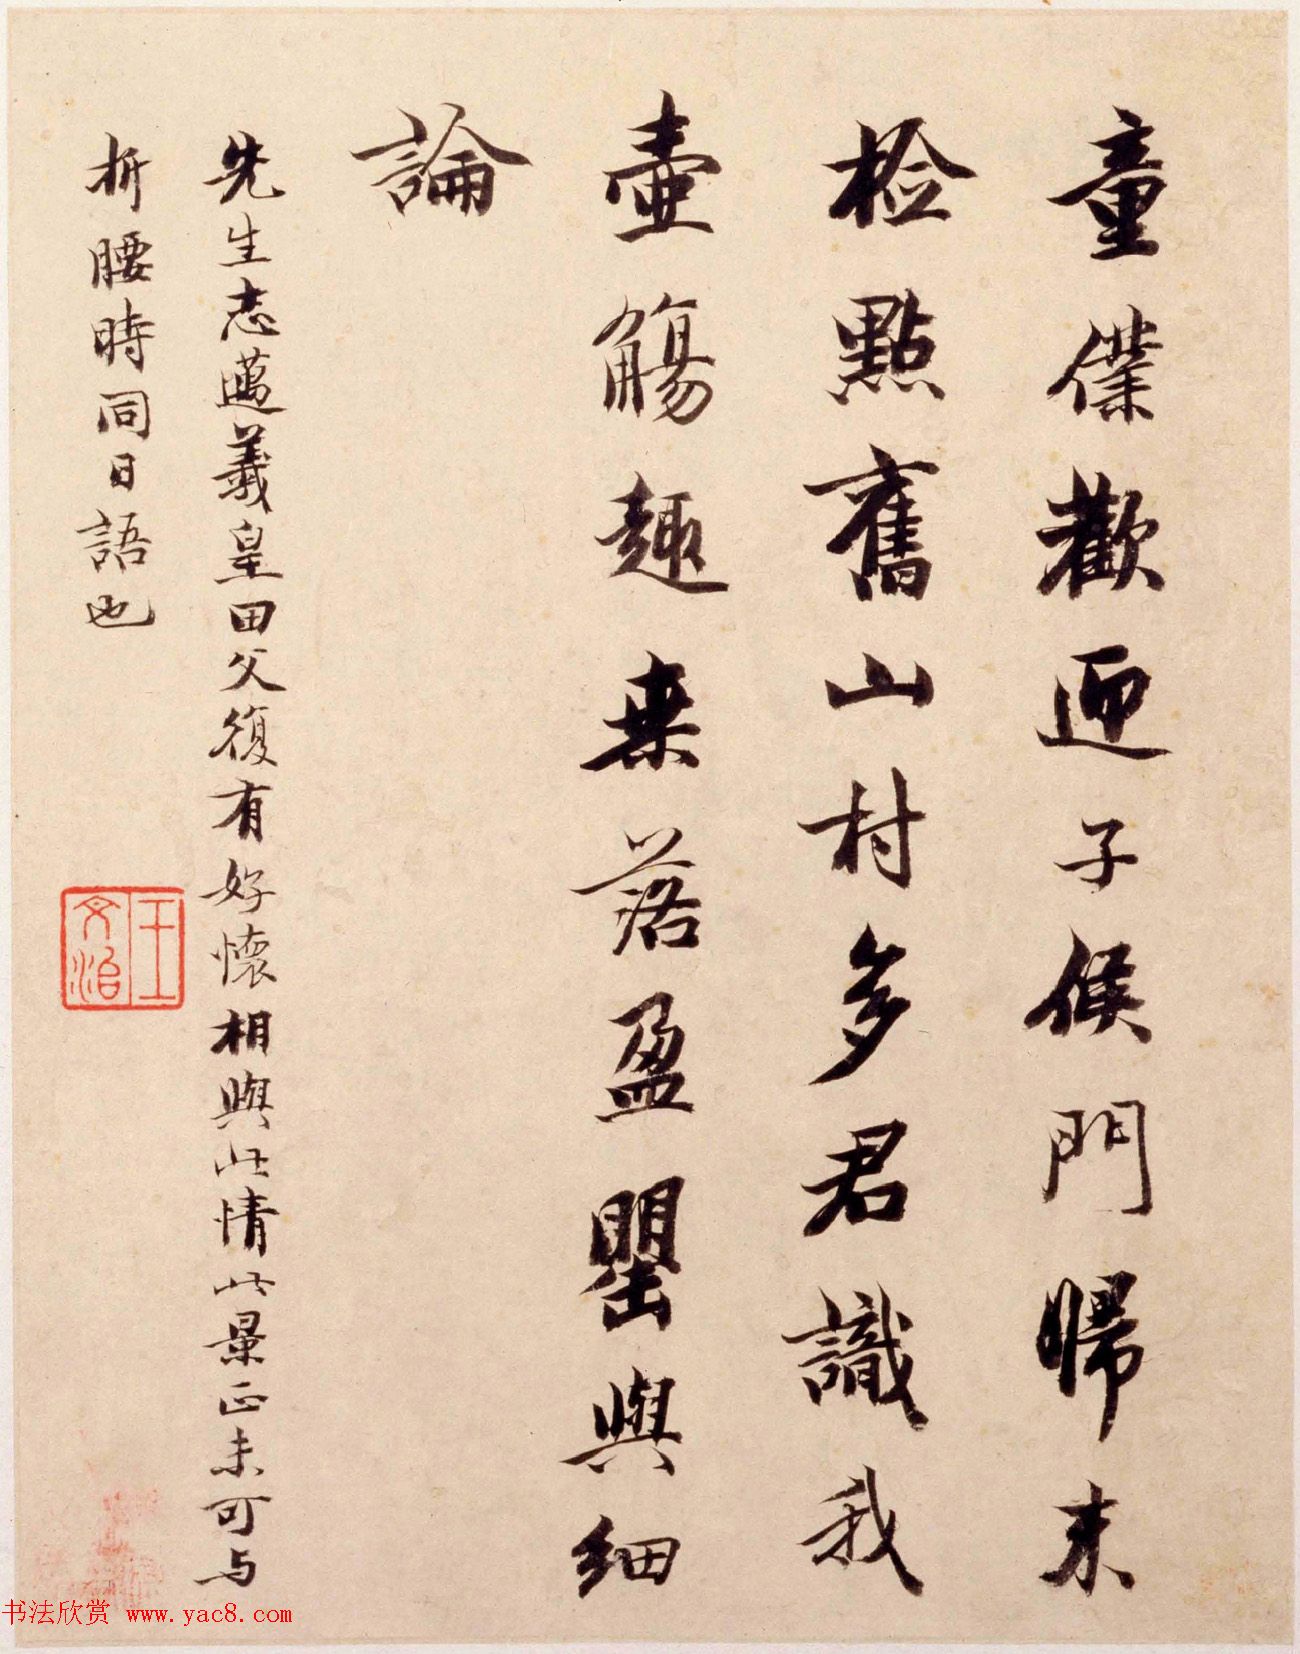 童僕歡迎子候門歸来
检點舊山村多君識我
壺觴趣桒落盈罌與細
論
先生志邁羲皇田父復有好懷相與此情此景正未可与
折腰時同日語也
王文治
书法欣赏 www.yac8.com